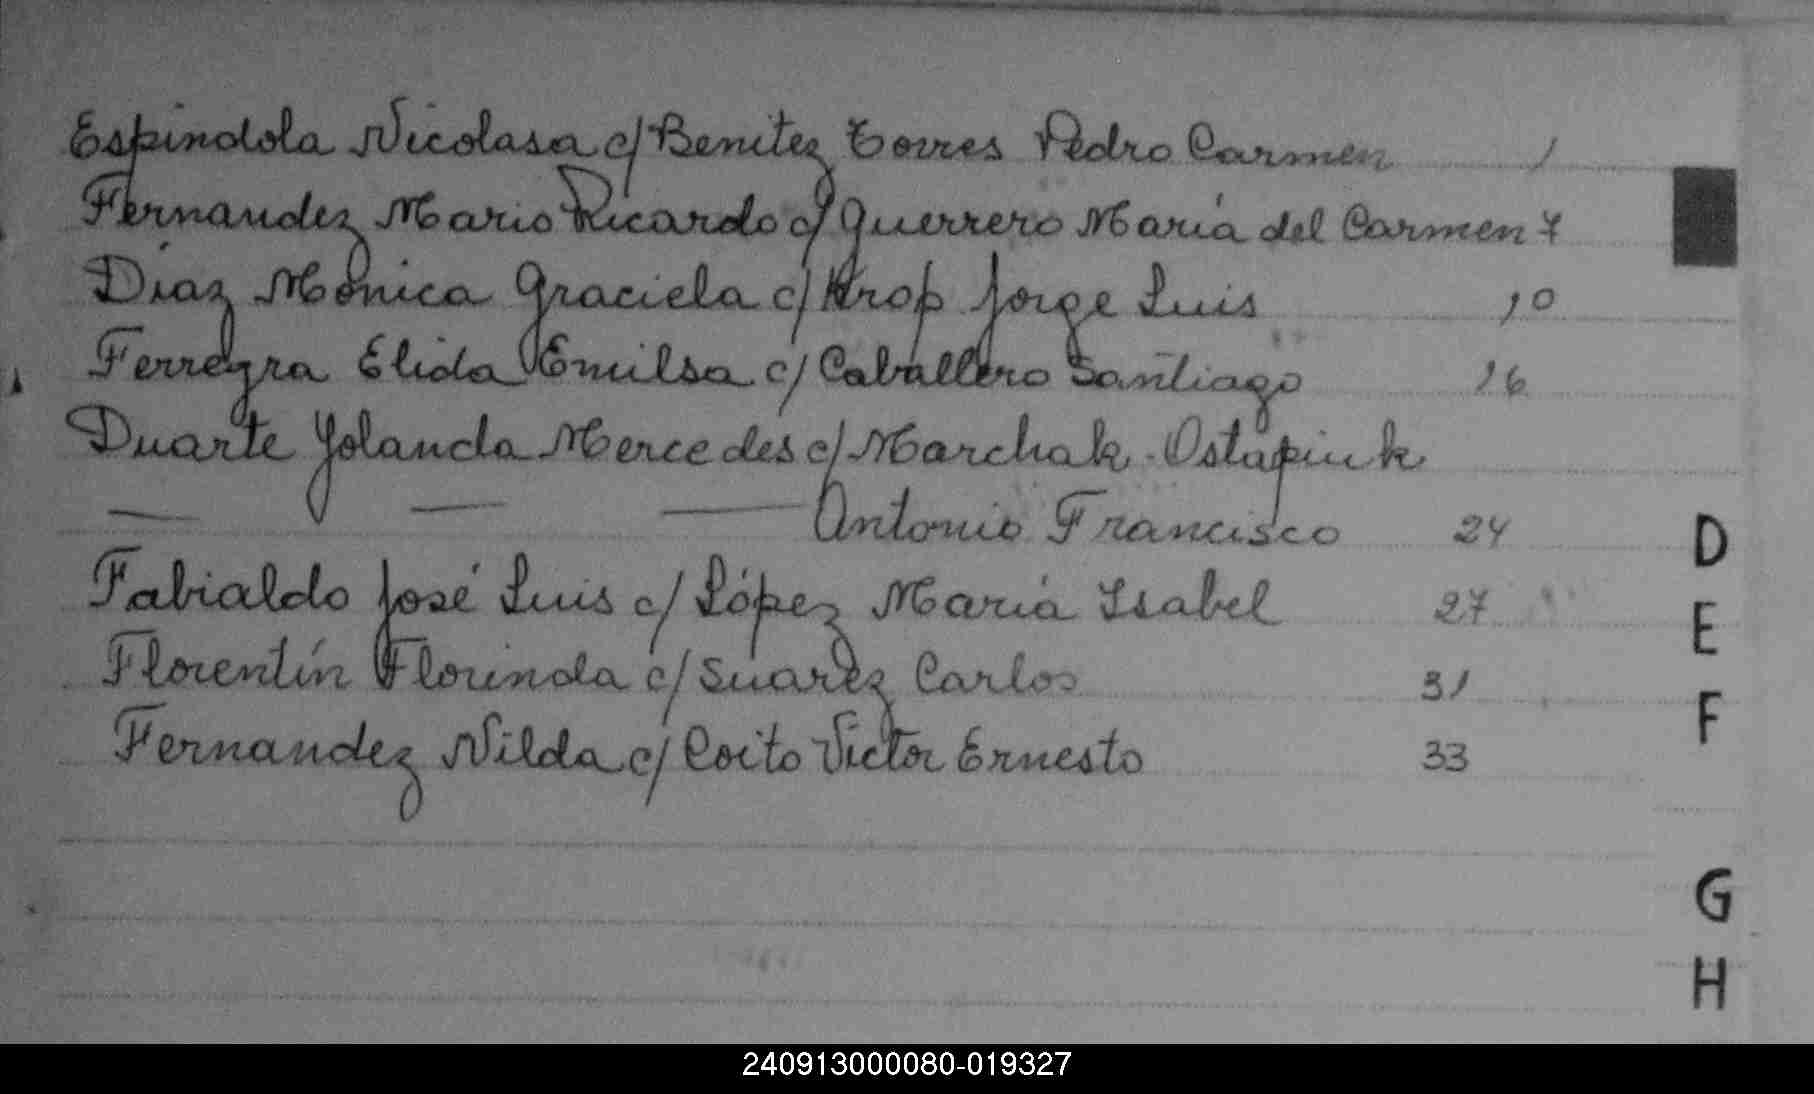 Espindola Nicolasa c/ Benitez Torres Pedro Carmen 1
Fernandez Mario Ricardo c/ Guerrero María del Carmen 7
Díaz Mónica Graciela c/ Krop Jorge Luis 10
Ferreyra Elida Emilsa c/ Caballero Santiago 16
Duarte Yolanda Mercedes c/ Marchak-Ostapiuk
— — — Antonio Francisco 24
Fabialdo José Luis c/ López María Isabel 27
Florentín Florinda c/ Suarez Carlos 31
Fernandez Nilda c/ Coito Victor Ernesto 33
D
E
F
G
H
240913000080-019327